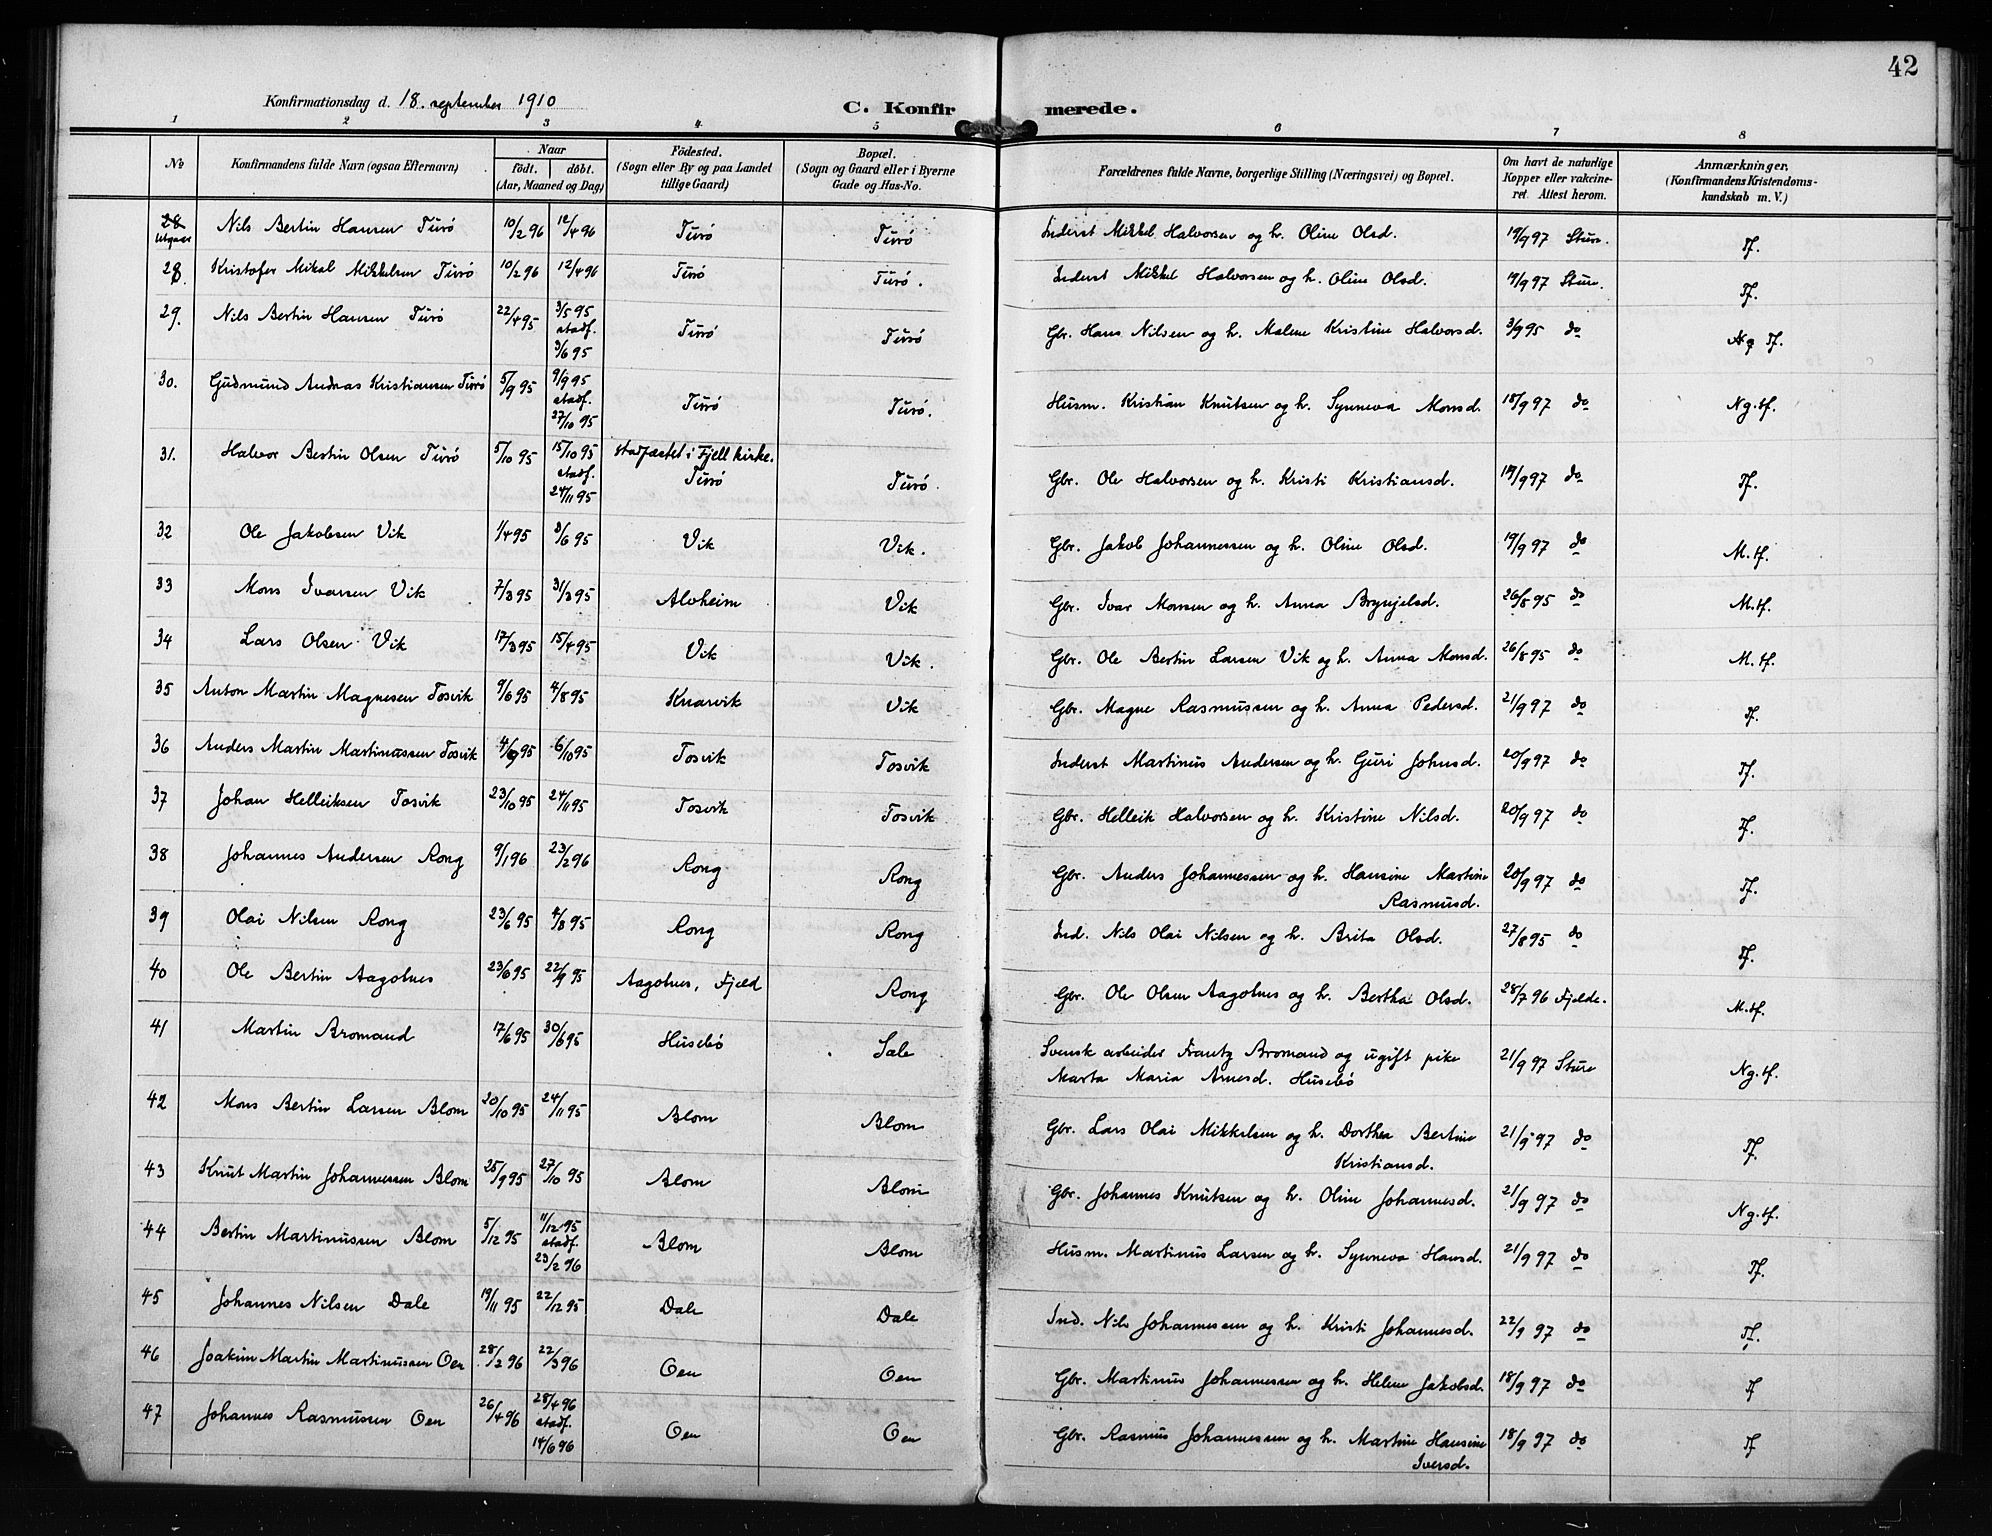 42
Konfirmationsdag d. 18. september 1910
C. Konfirmerede.
1 2 3 4 5 6 7 8
No
Konfirmandens fulde Navn (ogsaa Efternavn)
Naar
født. døbt.
(Aar, Maaned og Dag)
Fødested.
(Sogn eller By og paa Landet
tillige Gaard)
Bopæl.
(Sogn og Gaard eller i Byerne
Gade og Hus-No.
Forældrenes fulde Navne, borgerlige Stilling (Næringsvei) og Bopæl.
Om havt de naturlige
Kopper eller vakcine-
ret. Attest herom.
Anmærkninger.
(Konfirmandens Kristendoms-
kundskab m. V.)
28 Utgaar Nils Bertin Hansen Turö 10/2 96 12/4 96 Turö Turö Inderst Mikkel Halvorsen og h. Oline Olsd. 19/9 97 Sture. Tf.
28. Kristofer Mikal Mikkelsen Turö 10/2 96 12/4 96 Turö Turö. Inderst Mikkel Halvorsen og h. Oline Olsd. 19/9 97 Sture. Tf.
29. Nils Bertin Hansen Turö 22/4 95 3/5 95 stadf. 3/6 95 Turö Turö Gbr. Hans Nilsen og h. Malene Kristine Halvorsd. 3/9 95 do Tf.
30. Gudmund Andreas Kristiansen Turö 5/9 95 9/9 95 stadf. 27/10 95 Turö Turö. Husm. Kristian Knutsen og h. Synneva Monsd. 18/9 97 do Ng. tf.
31. Halvor Bertin Olsen Turö 5/10 95 15/10 95 stadf. 24/11 95 stadfæstet i Fjell kirke. Turö Turö. Gbr. Ole Halvorsen og h. Kristi Kristiansd. 19/9 97 do Tf.
32 Ole Jakobsen Vik 1/4 95 3/6 95 Vik Vik. Gbr. Jakob Johannessen og h. Oline Olsd. 19/9 97 do M. tf.
33 Mons Ivarsen Vik 7/3 95 31/3 95 Alvheim Vik Gbr. Ivar Monsen og h. Anna Brynjelsd. 26/8 95 do M. tf.
34 Lars Olsen Vik 17/3 95 15/4 95 Vik Vik. Gbr. Ole Bertin Larsen Vik og h. Anna Monsd. 26/8 95 do M. tf.
35 Anton Martin Magnesen Tosvik 9/6 95 4/8 95 Knarvik Vik Gbr. Magne Rasmussen og h. Anna Pedersd. 21/9 97 do Tf.
36 Anders Martin Martinussen Tosvik 4/9 95 6/10 95 Tosvik Tosvik Inderst Martinus Andersen og h. Guri Johnsd. 20/9 97 do Tf.
37 Johan Helleiksen Tosvik 23/10 95 24/11 95 Tosvik Tosvik Gbr. Helleik Halvorsen og h. Kristine Nilsd. 20/9 97 do Tf.
38 Johannes Andersen Rong 9/1 96 23/2 96 Rong Rong Gbr. Anders Johannessen og h. Hansine Martine Rasmusd. 20/9 97 do Tf.
39 Olai Nilsen Rong 23/6 95 4/8 95 Rong Rong Ind. Nils Olai Nilsen og h. Brita Olsd. 27/8 95 do Tf.
40 Ole Bertin Aagotnes 23/6 95 22/9 95 Aagotnes, Fjeld Rong Gbr. Ole Olsen Aagotnes og h. Bertha Olsd. 28/7 96 Fjelde. M. tf.
41 Martin Bromand 17/6 95 30/6 95 Husebö Sale Svensk arbeider Frantz Bromand og ugift pike
Marta Maria Arnesd. Husebö 21/9 97 Sture Ng. tf.
42 Mons Bertin Larsen Blom 20/10 95 24/11 95 Blom Blom Gbr. Lars Olai Mikkelsen og h. Dorthea Bertine Kristiansd. 21/9 97 do Tf.
43 Knut Martin Johannessen Blom 25/9 95 27/10 95 Blom Blom Gbr. Johannes Knutsen og h. Oline Johannesd. 21/9 97 do Ng. tf.
44 Bertin Martinussen Blom 5/12 95 11/12 95 stadf. 23/2 96 Blom Blom Husm. Martinus Larsen og h. Synneva Hansd. 21/9 97 do Tf.
45 Johannes Nilsen Dale 19/11 95 22/12 95 Dale Dale Ind. Nils Johannessen og h. Kristi Johannesd. 22/9 97 do Tf.
46 Joakim Martin Martinussen Oen 28/2 96 22/3 96 Oen Oen Gbr. Martinus Johannessen og h. Helene Jakobsd. 18/9 97 do Tf
47 Johannes Rasmussen Oen 26/4 96 28/4 96 stadf. 14/6 96 Oen Oen Gbr. Rasmus Johannessen og h. Martine Hansine Iversd. 18/9 97 do Tf